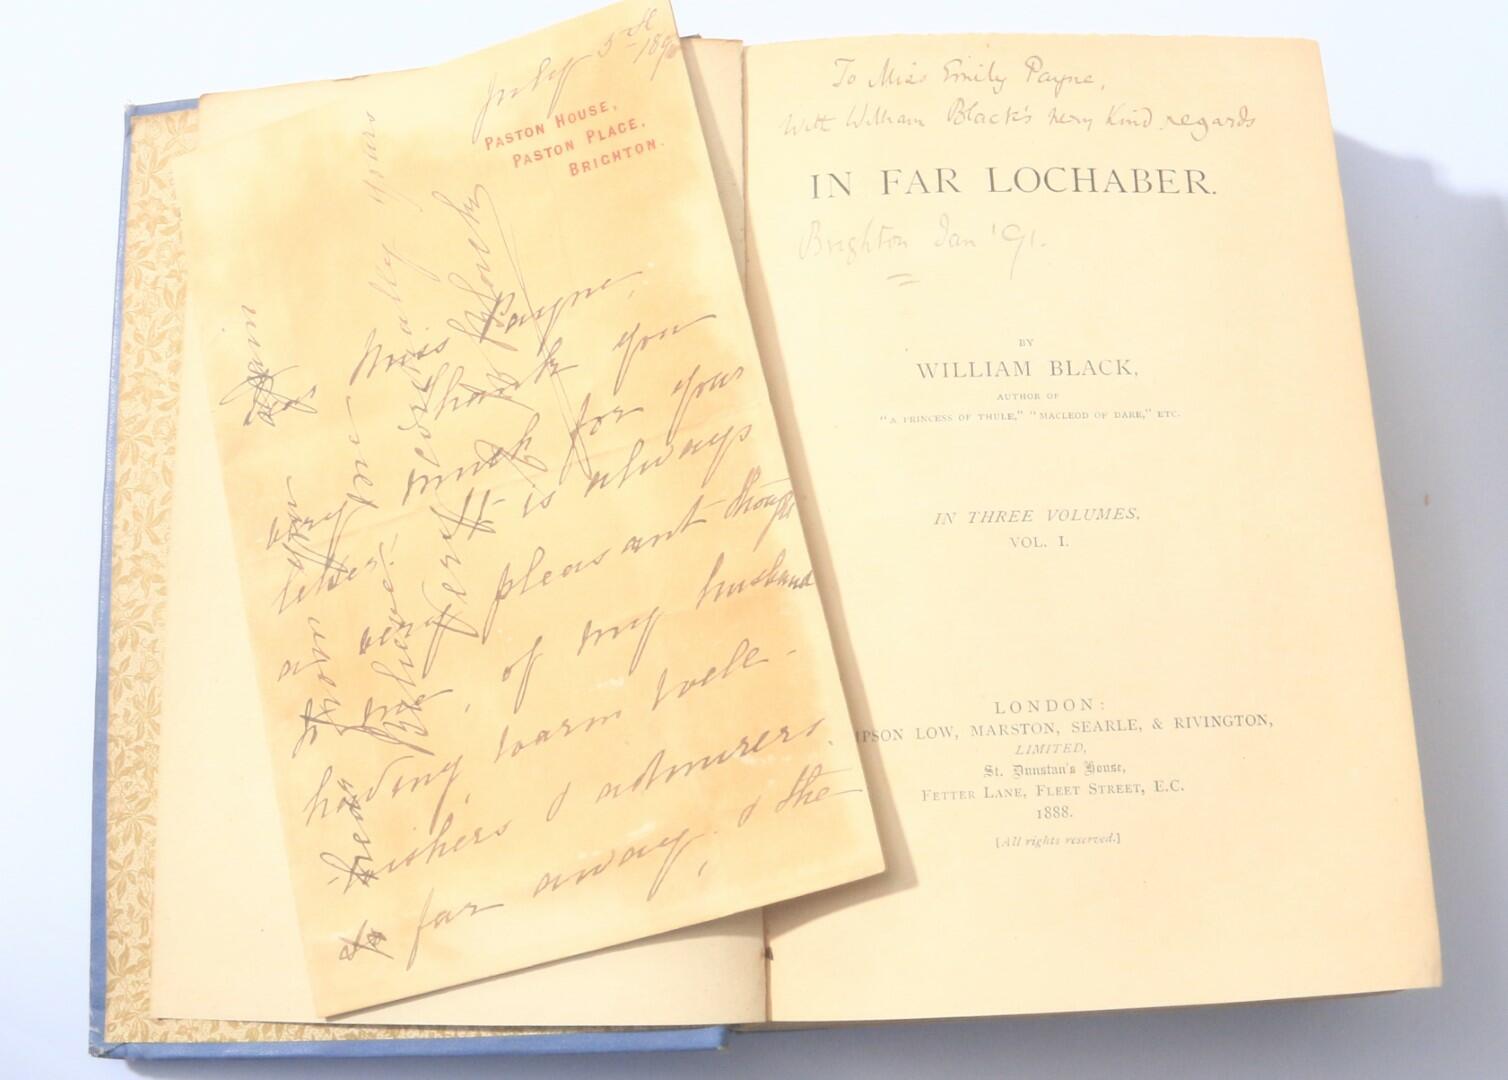 July 5th
1890
PASTON HOUSE,
PASTON PLACE,
BRIGHTON.
Miss Payne,
thank you
very much for your
letter. It is always
a very pleasant thought
of my husband
having warm well-
wishers & admirers
far away, & the
to hear
from
you
again
Believe me
very
yours
Black
To Miss Emily Payne,
With William Black's very kind regards
IN FAR LOCHABER.
Brighton Jan '91.
BY
WILLIAM BLACK,
AUTHOR OF
"A PRINCESS OF THULE," "MACLEOD OF DARE," ETC.
IN THREE VOLUMES.
VOL. I.
LONDON:
PSON LOW, MARSTON, SEARLE, & RIVINGTON,
LIMITED,
St. Dunstan's House,
FETTER LANE, FLEET STREET, E.C.
1888.
[All rights reserved.]